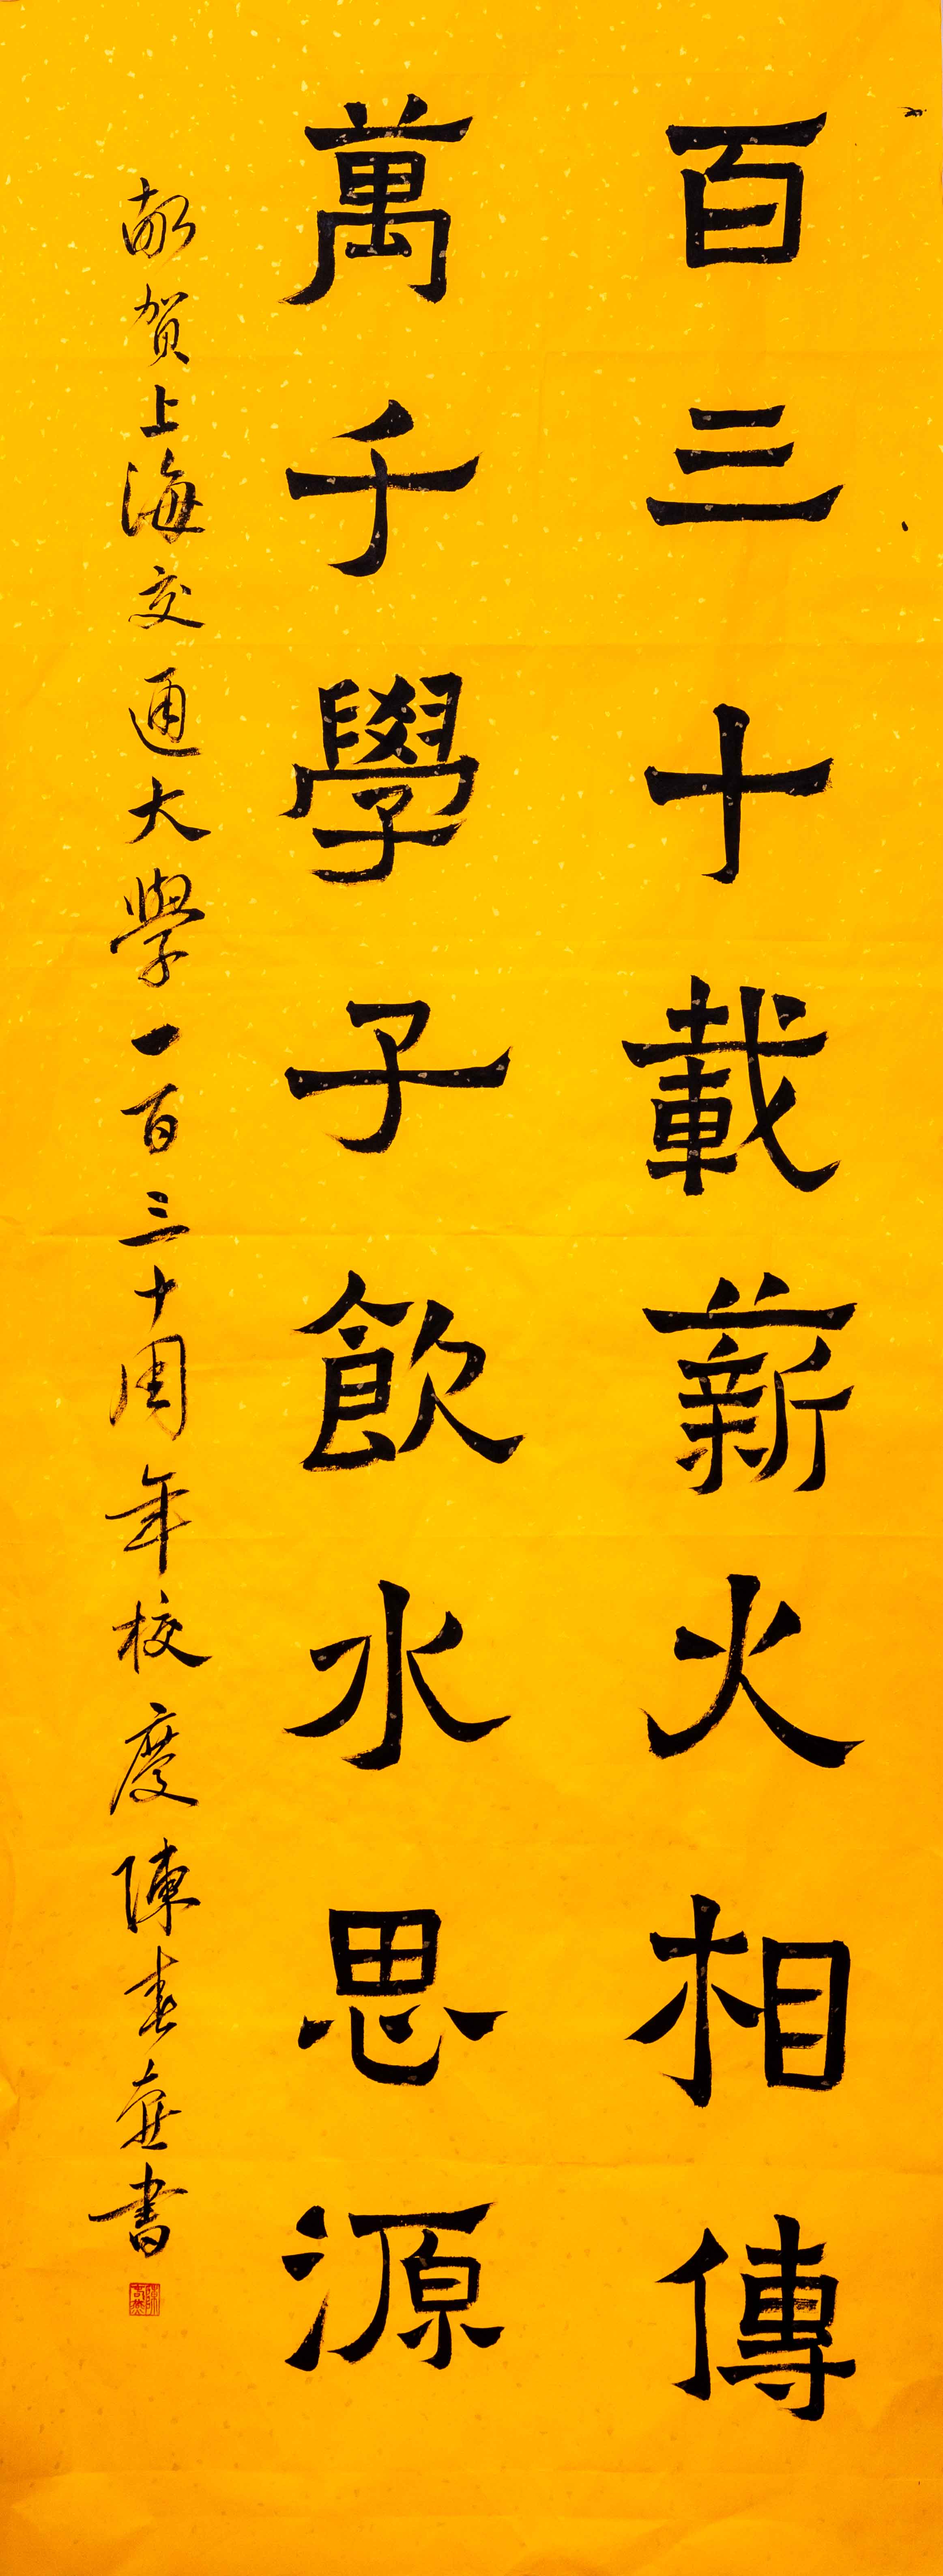 百三十載薪火相傳
萬千學子飲水思源
敬贺上海交通大學一百三十周年校慶陳春燕書